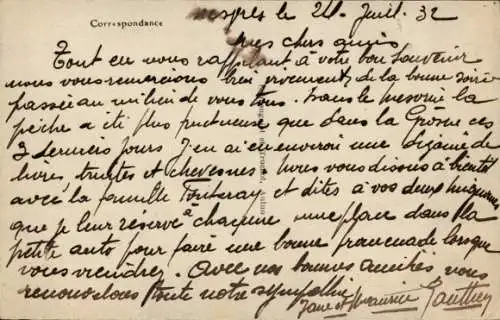 Correspondance
le 24 Juil. 32
mes chers amis
Tout en nous rappelant à votre bon souvenir
nous vous remercions bien vivement de la bonne soirée
passée au milieu de vous tous. Dans le la
pêche a été plus fructueuse que dans la Grosne ces
3 derniers jours j'en ai eu environ une dizaine de
livres truites et chevesnes. nous vous disons à bientôt
avec la famille et dites à vos deux
que je leur réserve à chacune une place dans la
petite auto pour faire une bonne promenade lorsque
vous viendrez. Avec nos bonnes amitiés, vous
renouvelons toute notre sympathie
Jane et Maurice Gauthier